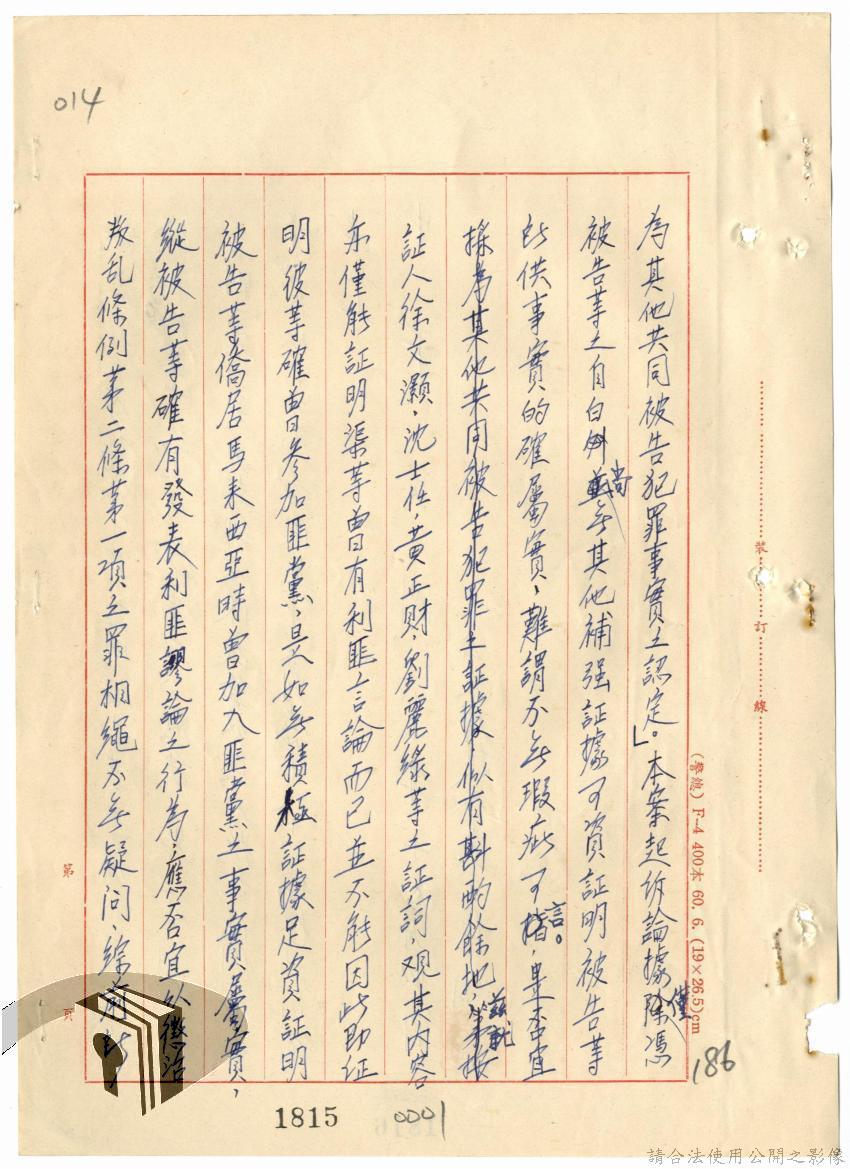 014
為其他共同被告犯罪事實之認定。」本案起訴論據僅憑
被告等之自白外尚無其他補强証據可資証明被告等
所供事實的確屬實,難謂不無瑕疵可言。是否宜
採為其他共同被告犯罪之証據,似有斟酌餘地,茲就
証人徐文灝,沈士任,黃正財,劉麗綠等之証詞,观其內容
亦僅能証明渠等曾有利匪言論而已並不能因此即証
明彼等確曾參加匪黨,是如無積極証據足資証明
被告等僑居馬来西亞時曾加入匪黨之事實屬實,
縱被告等確有發表利匪謬論之行為,應否宜以懲治
叛乱條例第二條第一項之罪相繩不無疑問,綜前所
裝 訂 線
(警總) F-4 400本 60. 6. (19×26.5)cm
186
第 頁
1815
0001
請合法使用公開之影像